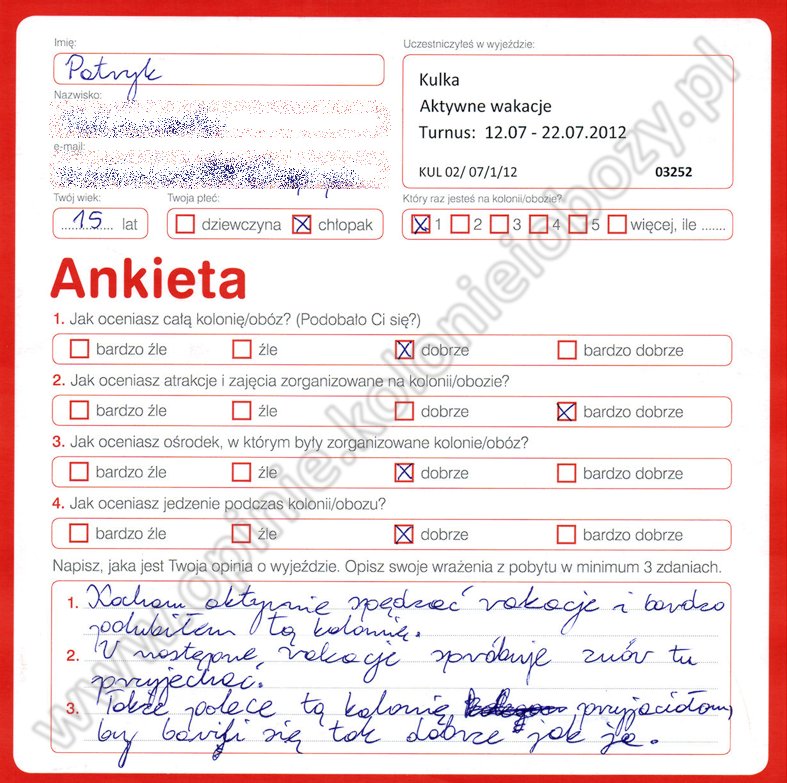 Imię:
Patryk
Nazwisko:
e-mail:
Twój wiek:
15 lat
Twoja płeć:
dziewczyna chłopak
Uczestniczyłeś w wyjeździe:
Kulka
Aktywne wakacje
Turnus: 12.07 - 22.07.2012
KUL 02/ 07/1/12 03252
Który raz jesteś na kolonii/obozie?
1 2 3 4 5 więcej, ile .......
Ankieta
1. Jak oceniasz całą kolonię/obóz? (Podobało Ci się?)
bardzo źle źle dobrze bardzo dobrze
2. Jak oceniasz atrakcje i zajęcia zorganizowane na kolonii/obozie?
bardzo źle źle dobrze bardzo dobrze
3. Jak oceniasz ośrodek, w którym były zorganizowane kolonie/obóz?
bardzo źle źle dobrze bardzo dobrze
4. Jak oceniasz jedzenie podczas kolonii/obozu?
bardzo źle źle dobrze bardzo dobrze
Napisz, jaka jest Twoja opinia o wyjeździe. Opisz swoje wrażenia z pobytu w minimum 3 zdaniach.
1. Kocham aktywnie spędzać wakacje i bardzo
polubiłem tą kolonię.
2. W następne wakacje spróbuje znów tu
przyjechać.
3. Także polece tą kolonię przyjaciołom,
by bawili się tak dobrze jak ja.
www.opinie.kolonieiobozy.pl